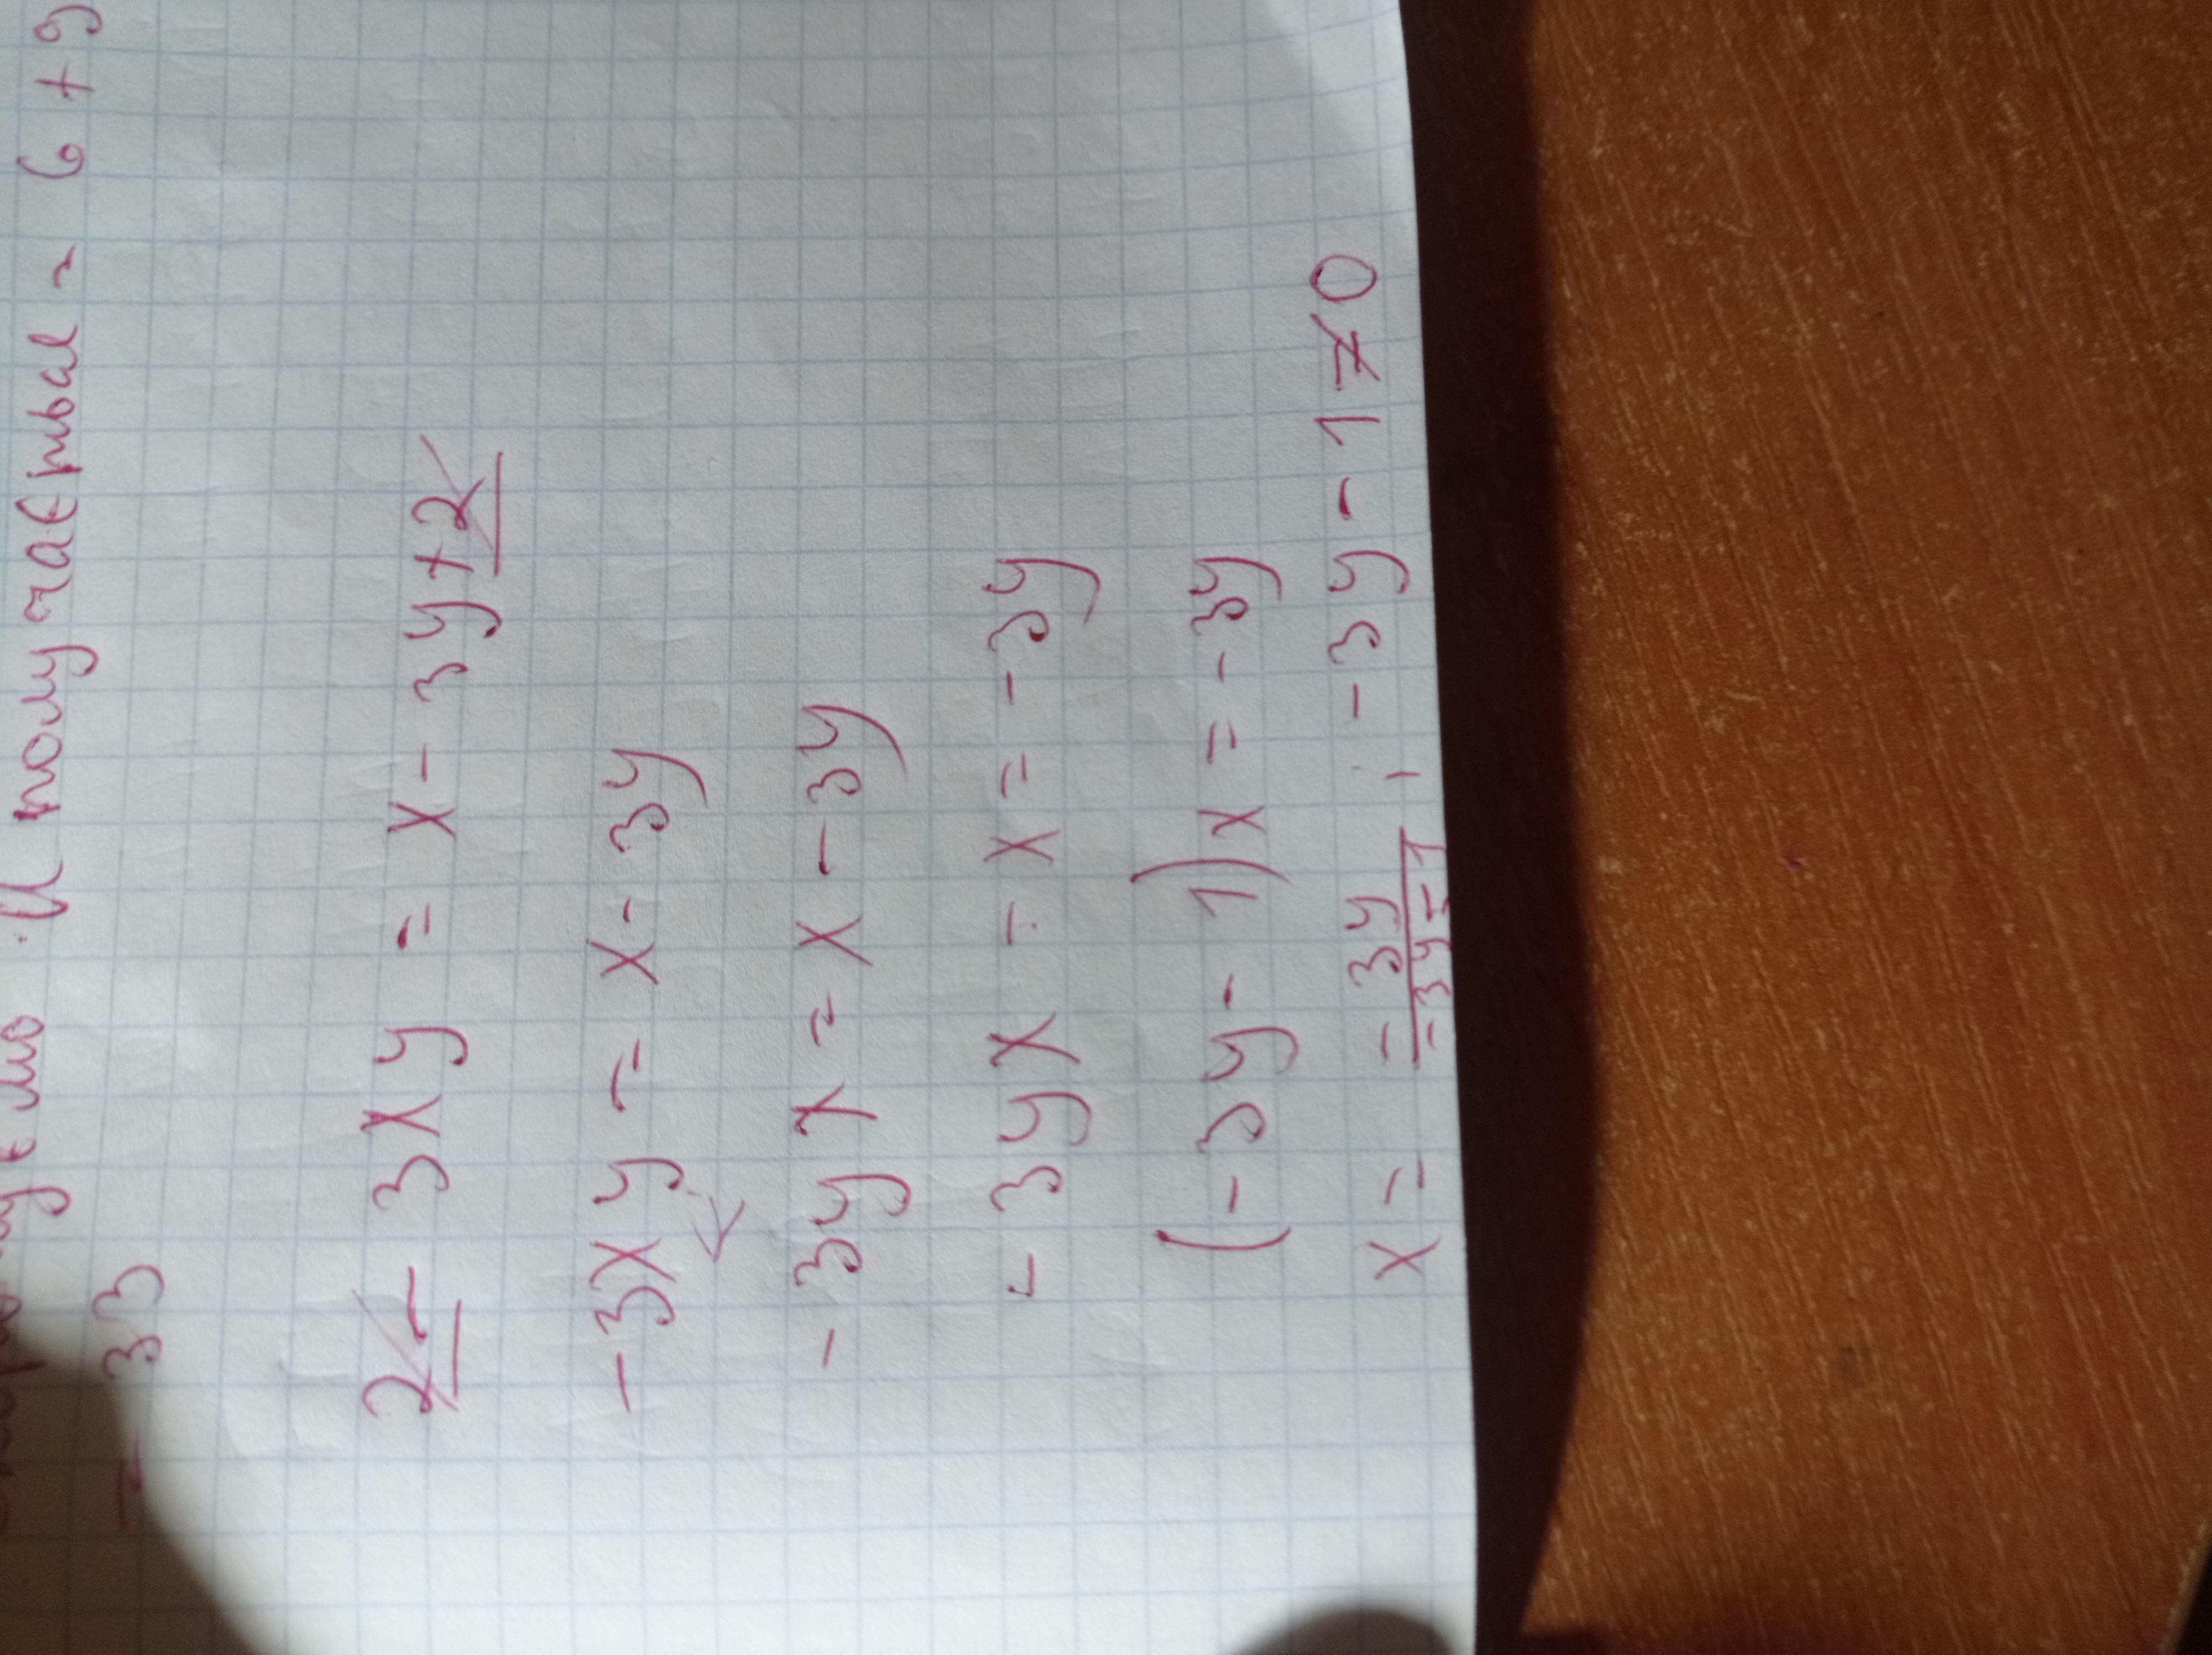 И получаем равн = 6 + 9
= 33
2 - 3xy = x - 3y + 2
-3xy = x - 3y
-3yx = x - 3y
-3yx - x = -3y
(-3y - 1)x = -3y
x = -3y/-3y-1 ; -3y - 1 ≠ 0